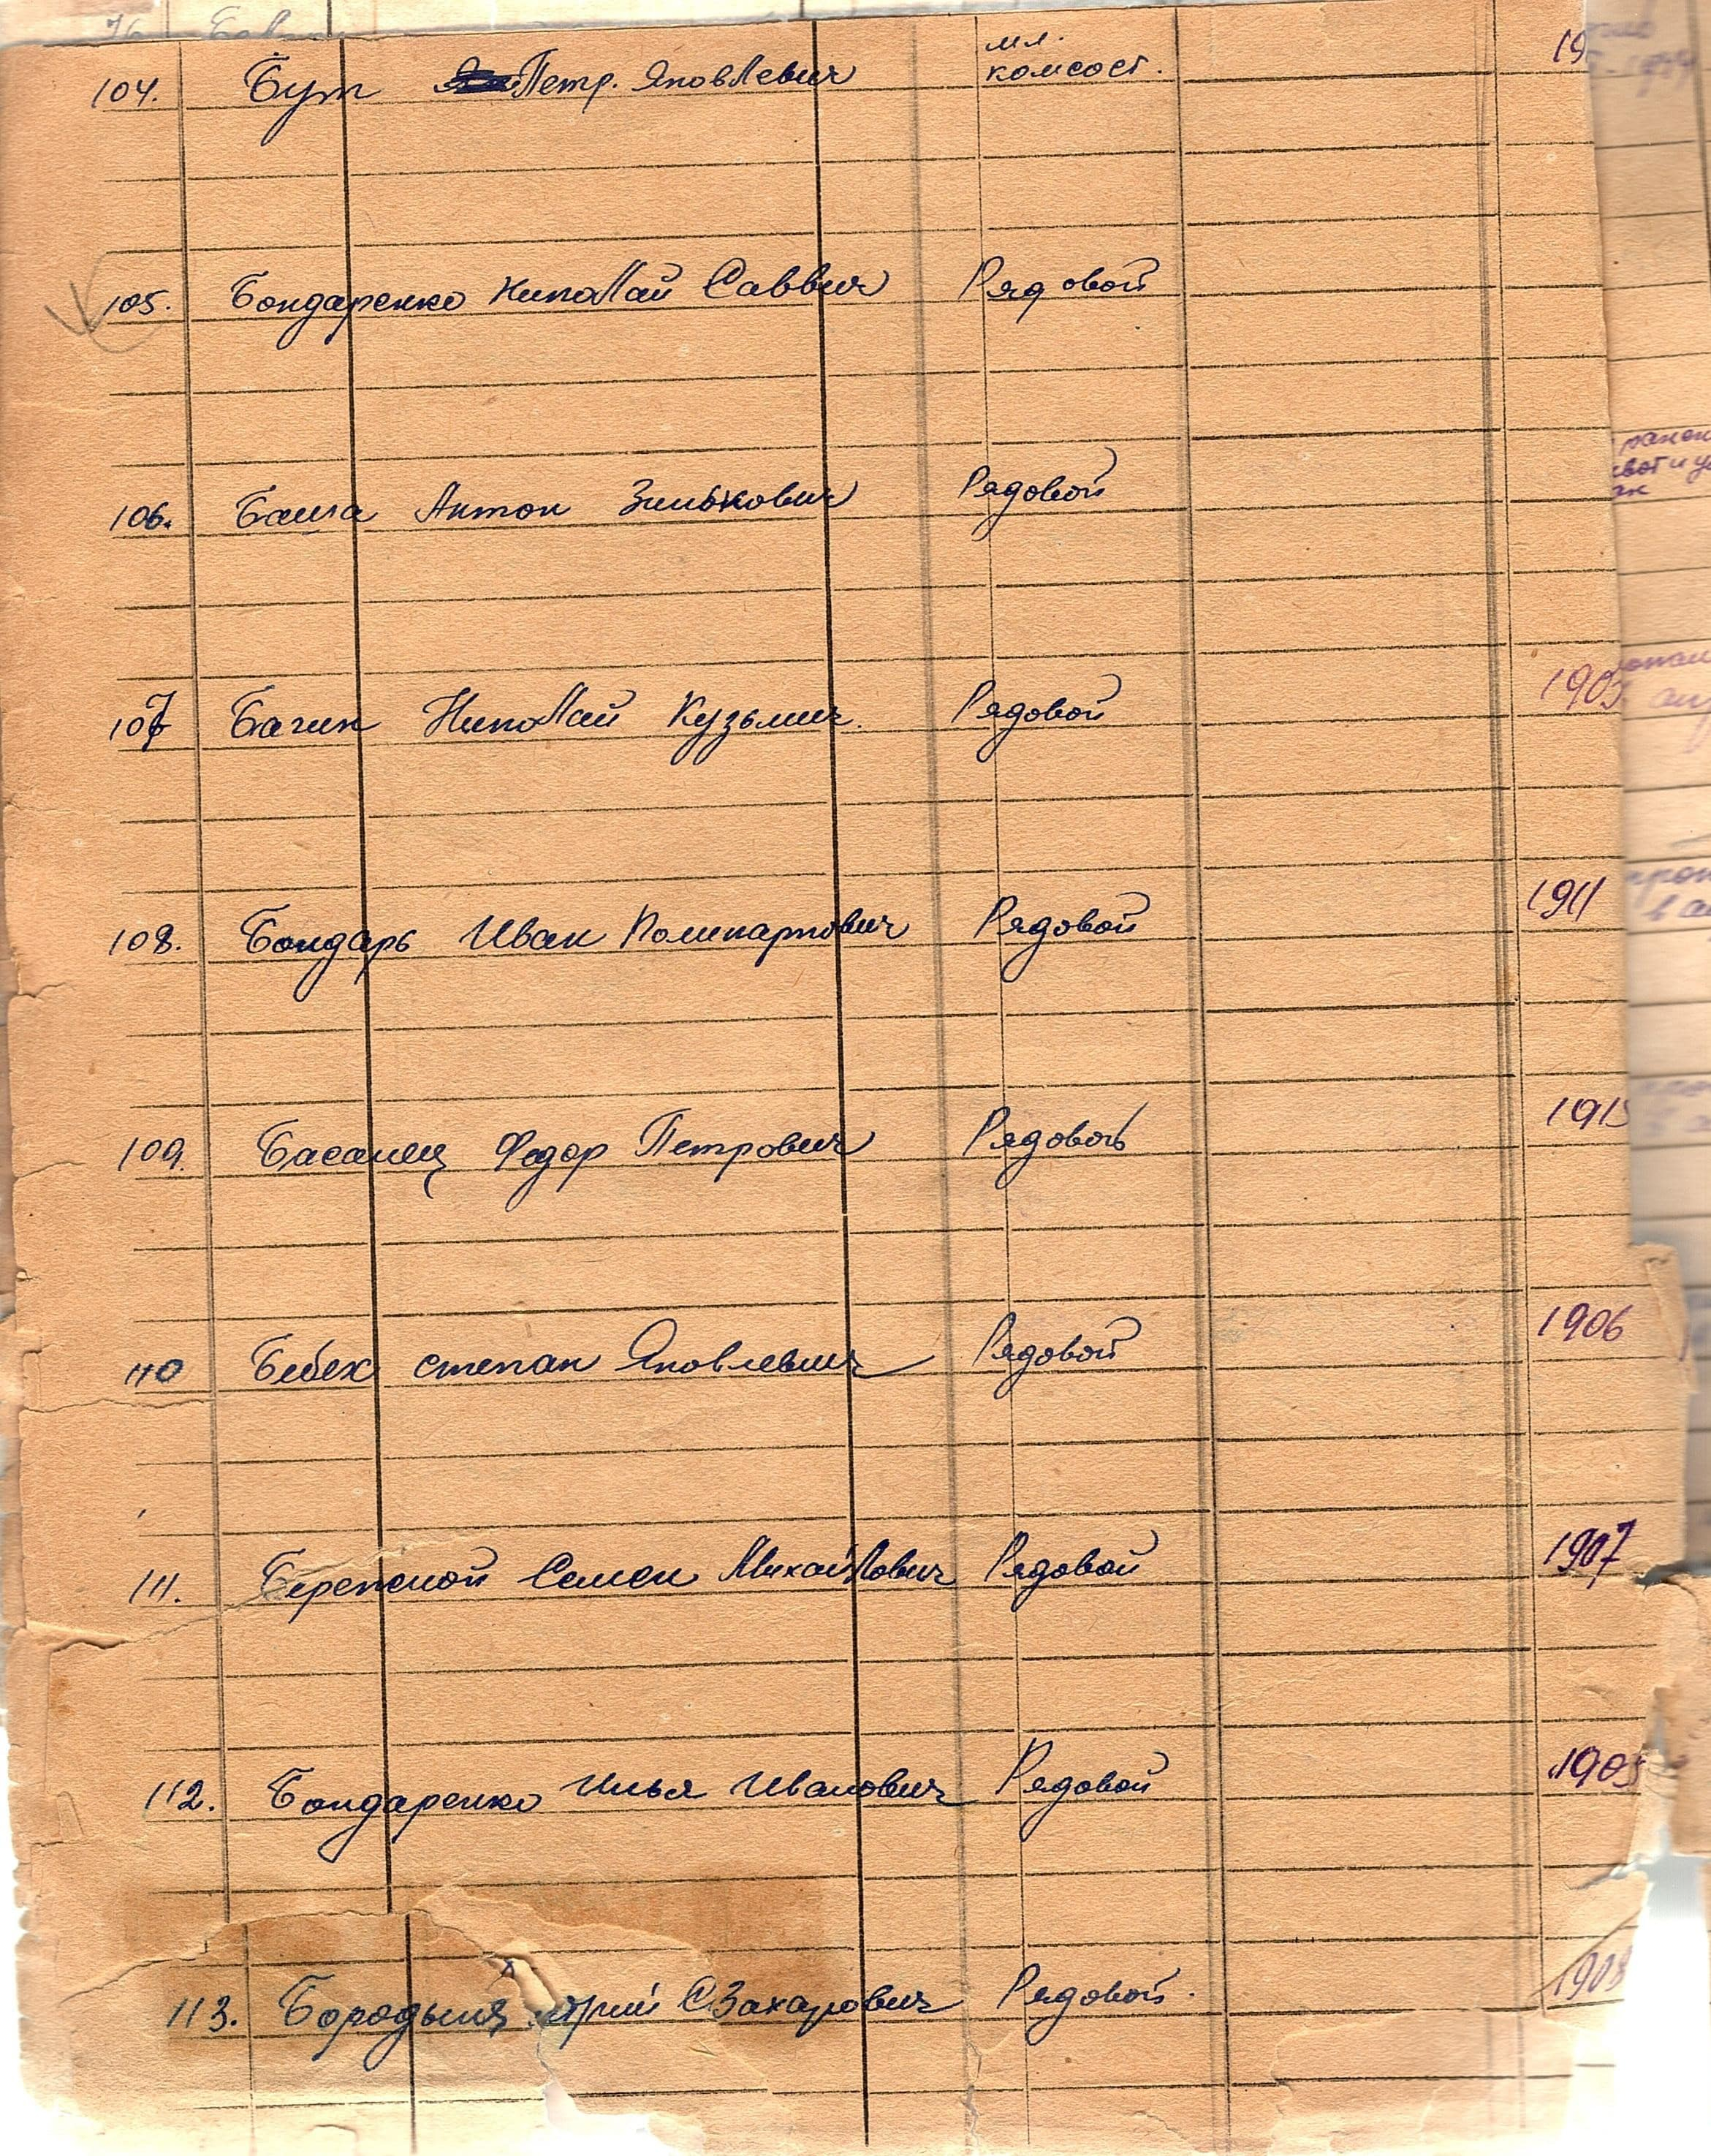 мл.
104. Бут Петр. Яковлевич комсост. 19
105. Бондаренко Николай Саввич Рядовой
106. Баша Антон Зиновович Рядовой
107 Багин Николай Кузьмич. Рядовой 1905
108. Бондарь Иван Поликарпович Рядовой 1911
109. Басанец Федор Петрович Рядовой 1915
110 Бебех Степан Яковлевич Рядовой 1906
111. Семен Михайлович Рядовой 1907
112. Бондаренко Илья Иванович Рядовой 1905
113. Захарович Рядовой. 1908